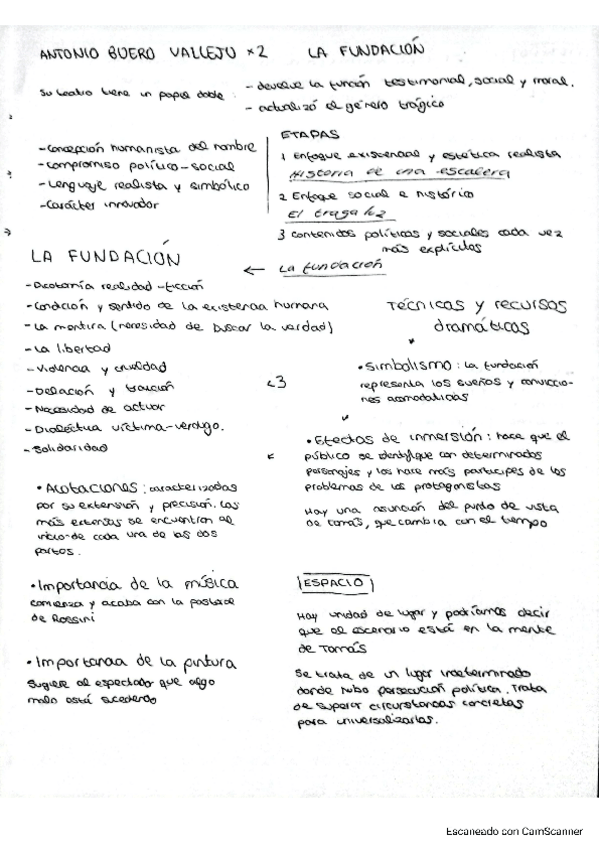 ANTONIO BUERO VALLEJO x2 LA FUNDACIÓN
Su teatro tiene un papel doble: - devuelve la función testimonial, social y moral.
- actualizó el género trágico
- Concepción humanista del hombre
- Compromiso político-social
- Lenguaje realista y simbólico
- Carácter innovador
ETAPAS
1 Enfoque existencial y estética realista
Historia de una escalera
2 Enfoque social e histórico
El tragaluz
3 Contenidos políticos y sociales cada vez
más explícitos
← La fundación
LA FUNDACIÓN
- Dicotomía realidad-ficción
- Condición y sentido de la existencia humana
- La mentira (necesidad de buscar la verdad)
- La libertad
- Violencia y crueldad
- Delación y traición
- Necesidad de actuar
- Dialéctica víctima-verdugo.
- Solidaridad
• Acotaciones: caracterizadas
por su extensión y precisión. Las
más extensas se encuentran al
inicio de cada una de las dos
partes.
• Importancia de la música
comienza y acaba con la pastoral
de Rossini
• Importancia de la pintura
sugiere al espectador que algo
malo está sucediendo
Técnicas y recursos
dramáticos
<3
• Simbolismo: La fundación
representa los sueños y conviccio-
nes acomodaticias
• Efectos de inmersión: hace que el
público se identifique con determinados
personajes y los hace más partícipes de los
problemas de los protagonistas
Hay una asunción del punto de vista
de Tomás, que cambia con el tiempo
ESPACIO
Hay unidad de lugar y podríamos decir
que el escenario está en la mente
de Tomás
Se trata de un lugar indeterminado
donde hubo persecución política. Trata
de superar circunstancias concretas
para universalizarlas.
Escaneado con CamScanner